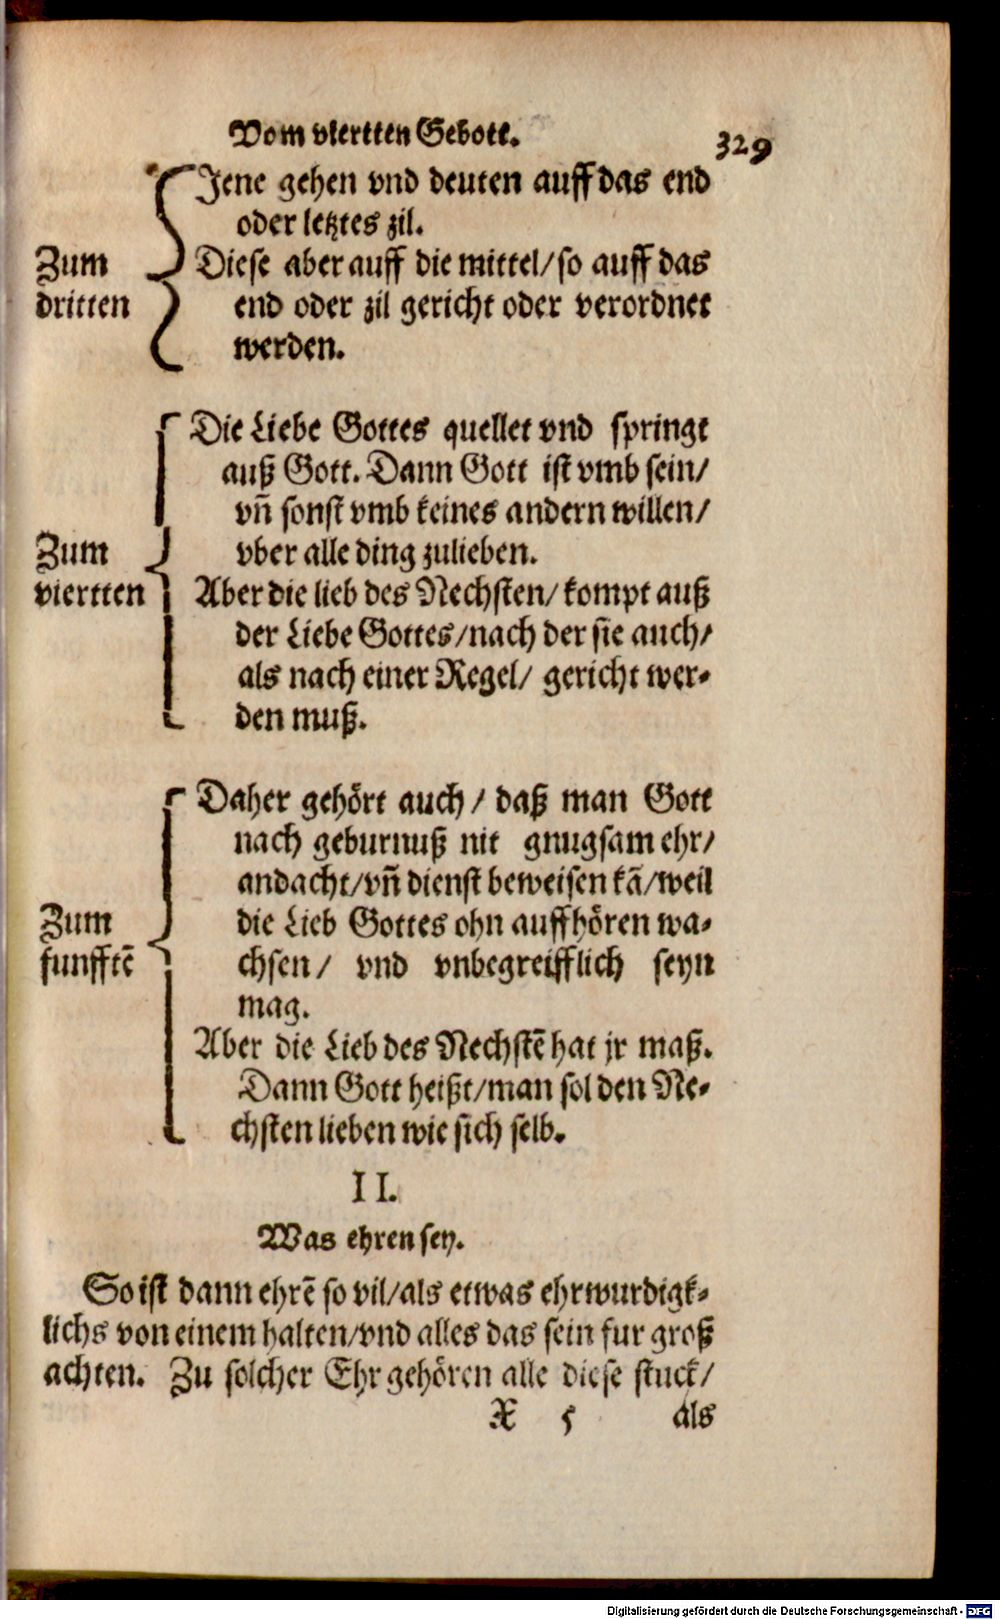 Vom viertten Gebott.
329
Jene gehen vnd deuten auff das end
oder letztes zil.
Zum
dritten
Diese aber auff die mittel/so auff das
end oder zil gericht oder verordnet
werden.
Die Liebe Gottes quellet vnd springt
auß Gott. Dann Gott ist vmb sein/
vn̄ sonst vmb keines andern willen/
Zum
viertten
vber alle ding zulieben.
Aber die lieb des Nechsten/ kompt auß
der Liebe Gottes/nach der sie auch/
als nach einer Regel/ gericht wer-
den muß.
Daher gehört auch/ daß man Gott
nach geburnuß nit gnugsam ehr/
andacht/vn̄ dienst beweisen kā/weil
Zum
funfftē
die Lieb Gottes ohn auffhören wa-
chsen/ vnd vnbegreifflich seyn
mag.
Aber die Lieb des Nechstē hat jr maß.
Dann Gott heißt/man sol den Ne-
chsten lieben wie sich selb.
II.
Was ehren sey.
So ist dann ehrē so vil/als etwas ehrwurdigk-
lichs von einem halten/vnd alles das sein fur groß
achten. Zu solcher Ehr gehören alle diese stuck/
X 5 als
Digitalisierung gefördert durch die Deutsche Forschungsgemeinschaft - DFG